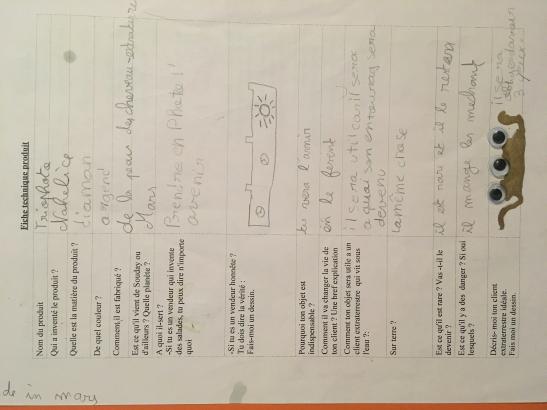 Fiche technique produit
Nom du produit
Triophoto
Qui a inventé le produit ?
Nahelice
Quelle est la matière du produit ?
diaman
De quel couleur ?
argent
Comment,il est fabriqué ?
de la peau des cheveau-
Est ce qu'il vient de Souday ou
d'ailleurs ? Quelle planète ?
Mars
A quoi il-sert ?
-Si tu es un vendeur qui invente
des salades, tu peux dire n'importe
quoi
Prendre en Photo l'
avenir
-Si tu es un vendeur honnête ?
Tu dois dire la vérité :
Fais-moi un dessin.
Pourquoi ton objet est
indispensable ?
tu vera l'avnir
Comment il va changer la vie de
ton client ? Une bref explication
en le
Comment ton objet sera utile a un
client extraterrestre qui vit sous
l'eau ?:
il sera util car il sera
a quoi son entourag sera
devenu
Sur terre ?
la même chose
Est ce qu'il est rare ? Vas -t-il le
devenir ?
il et rare et il le restera
Est ce qu'il y a des danger ? Si oui
lesquels ?
il mange les mechant
Décris- moi ton client
extraterrestre idéale.
Fais moi un dessin.
il sera
3 yeux
de in mars